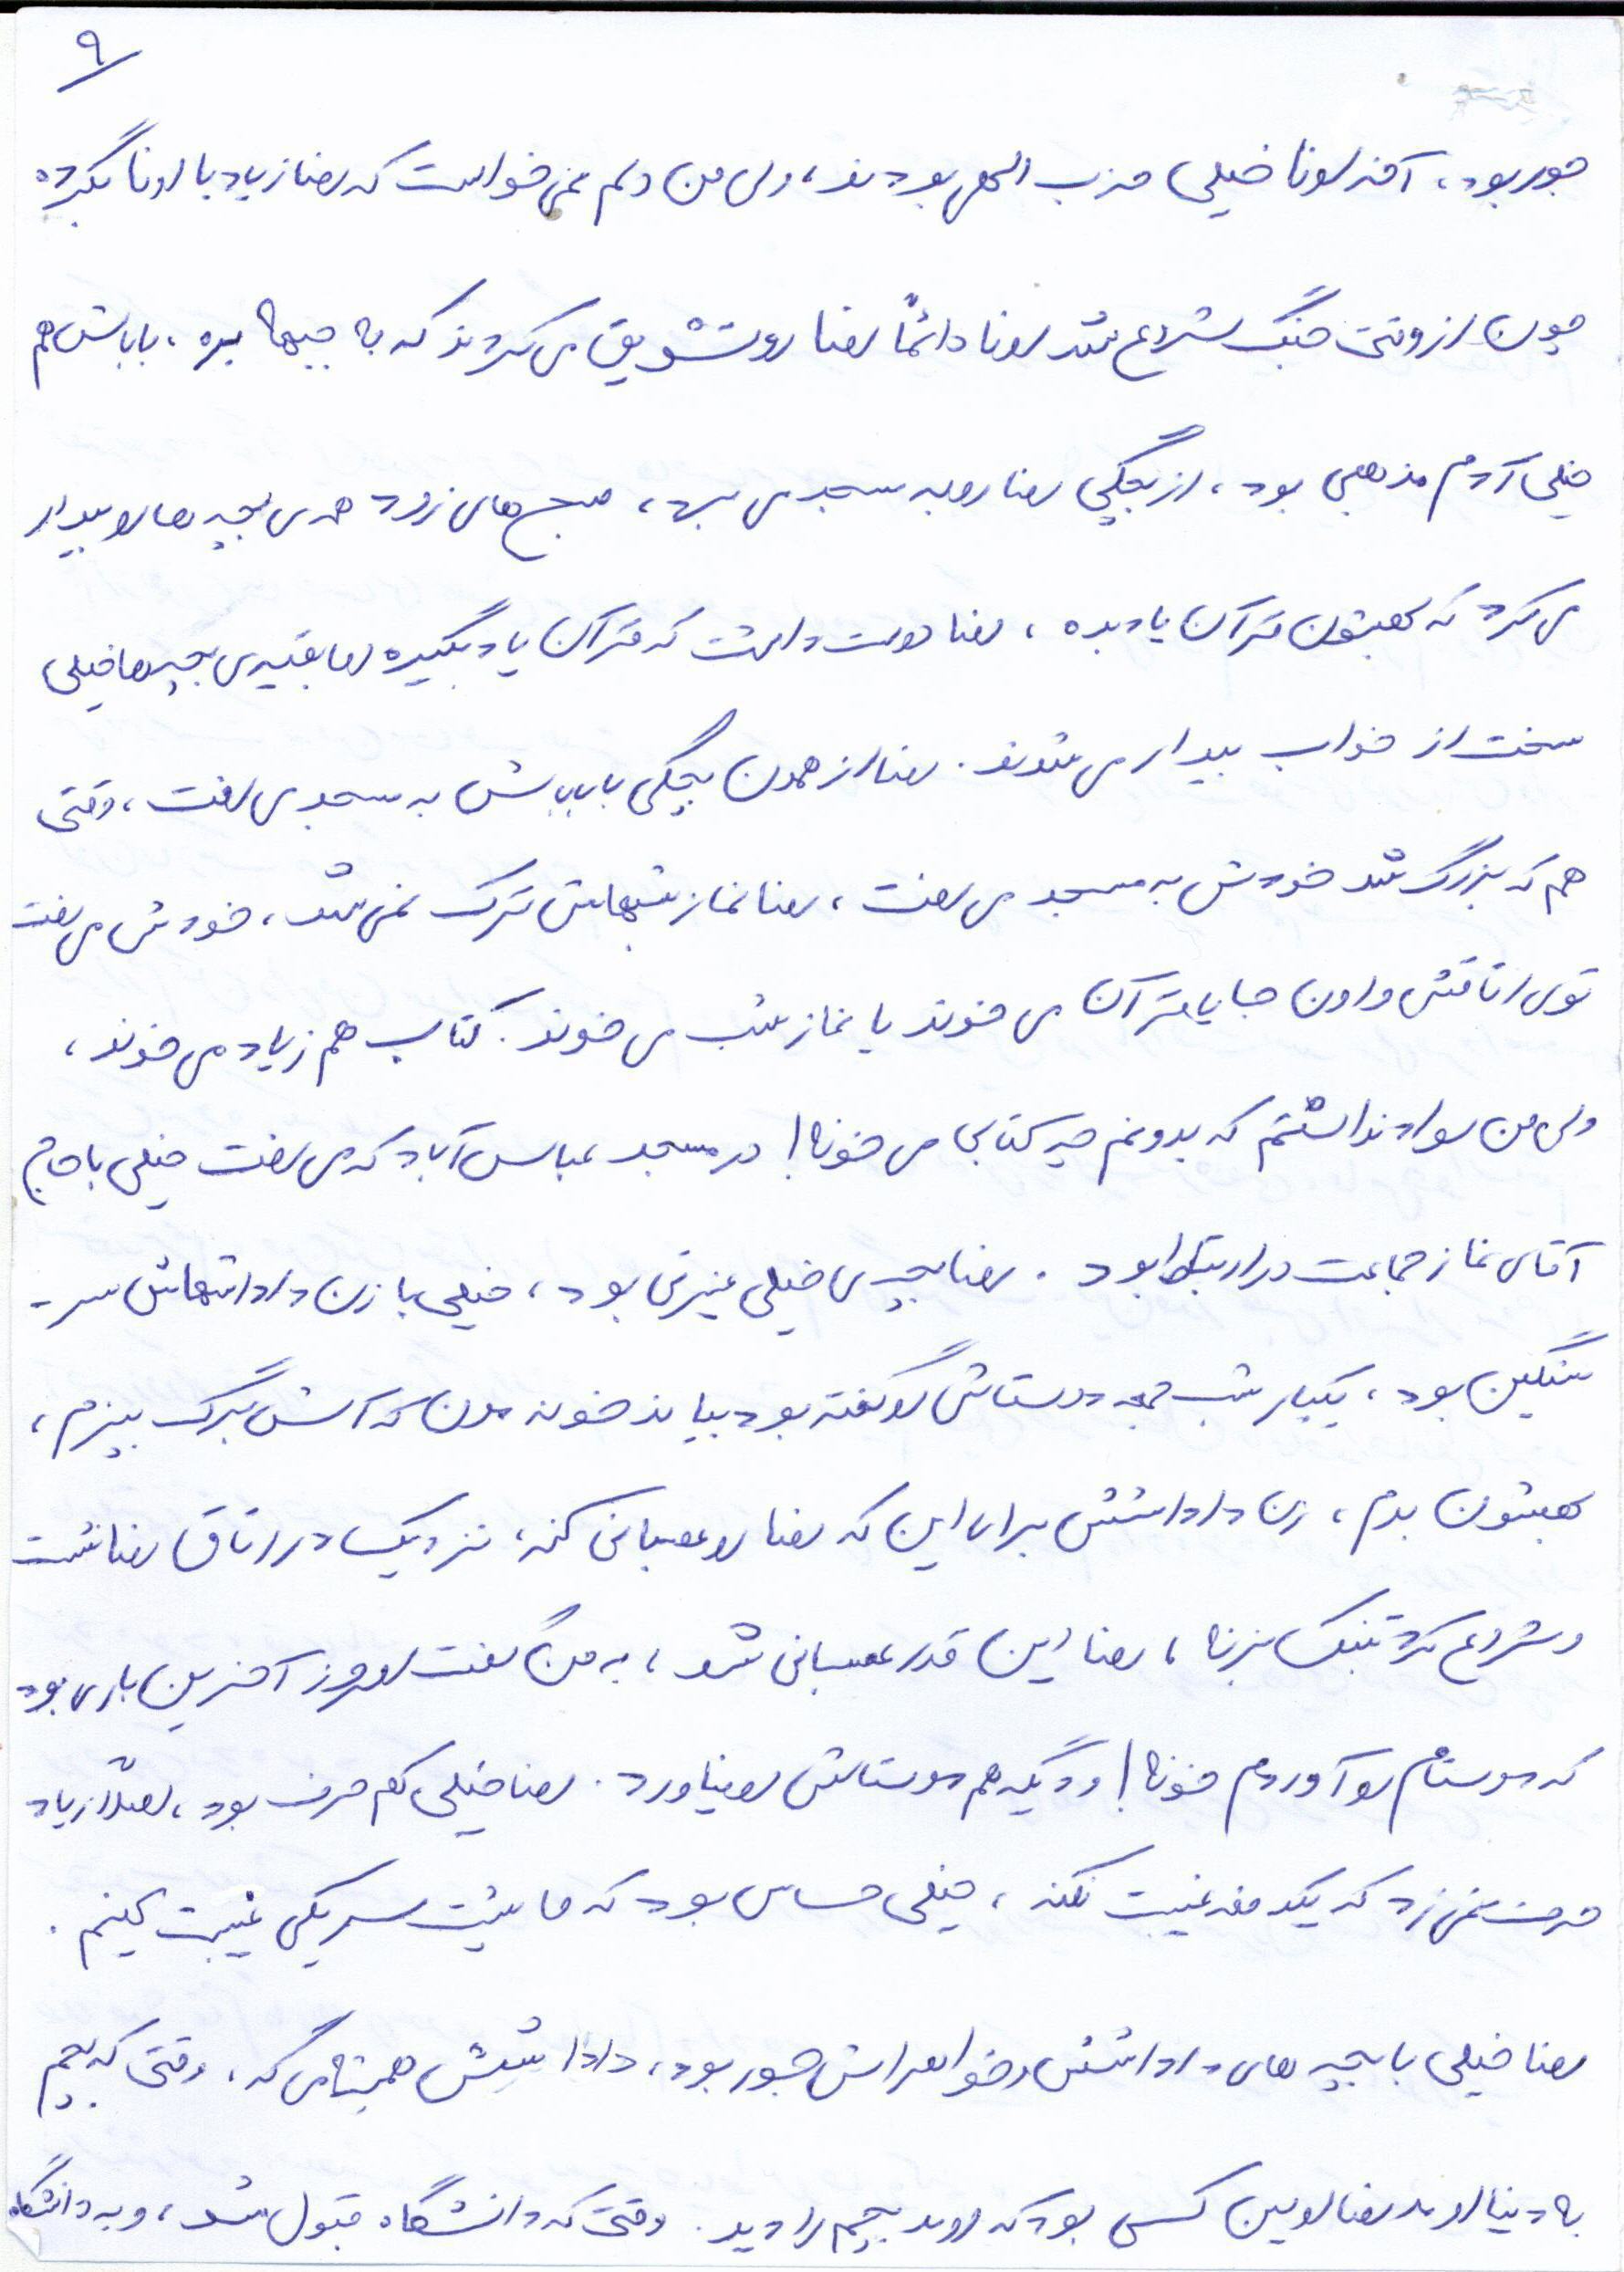 ۹
جور بود، آخه اونا خیلی حزب الهی بودند، ولی من دلم نمی خواست که رضا زیاد با اونا بگرده
چون از وقتی جنگ شروع شد اونا دائماً رضا رو تشویق می کردند که به جبهه بره، باباش هم
خیلی آدم مذهبی بود، از بچگی رضا رو به مسجد می برد، صبح های زود همه ی بچه ها رو بیدار
می کرد که بهشون قرآن یاد بده، رضا دوست داشت که قرآن یاد بگیره اما بقیه ی بچه ها خیلی
سخت از خواب بیدار می شدند. رضا از همون بچگی با باباش به مسجد می رفت، وقتی
هم که بزرگ شد خودش به مسجد می رفت، رضا نماز شبهاش ترک نمی شد، خودش می رفت
توی اتاقش و اون جا یا قرآن می خوند یا نماز شب می خوند. کتاب هم زیاد می خوند،
ولی من سواد نداشتم که بدونم چه کتابی می خونه! در مسجد عباس آباد که می رفت خیلی با حاج
آقای نماز جماعت در ارتباط بود. رضا بچه ی خیلی عزیزی بود، خیلی با زن داداشهاش سر-
سنگین بود، یکبار شب جمعه دوستاش رو گفته بود بیاند خونه مون که آش برگ بپزم،
بهشون بدم، زن داداشش برای این که رضا رو عصبانی کنه، نزدیک در اتاق رضا نشست
و شروع کرد تنبک بزنه، رضا این قدر عصبانی شد، به من گفت امروز آخرین باری بود
که دوستام رو آوردم خونه! و دیگه هم دوستاش رو نیاورد. رضا خیلی کم حرف بود، اصلاً زیاد
حرف نمی زد که یکدفعه غیبت نکنه، خیلی حساس بود که ما پشت سر یکی غیبت کنیم.
رضا خیلی با بچه های داداشش و خواهراش جور بود، داداشش همیشه می گه، وقتی که بچم
به دنیا اومد رضا اولین کسی بود که اومد بچم را دید. وقتی که دانشگاه قبول شد، و به دانشگاه